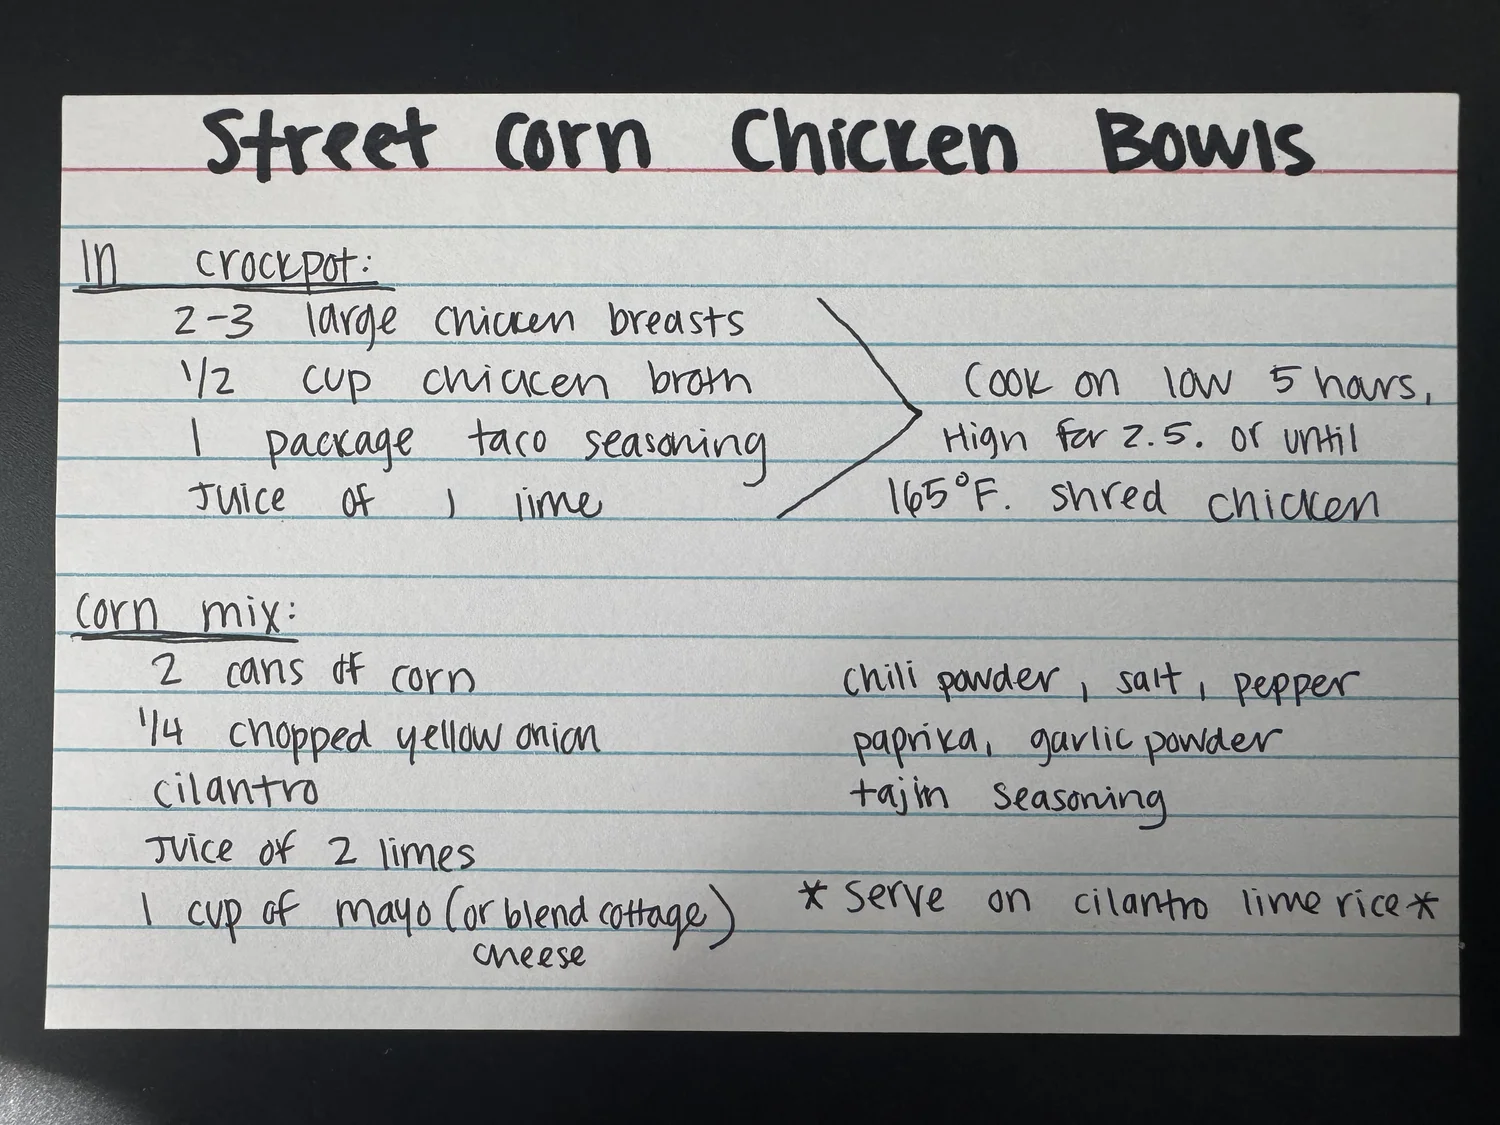 Street Corn Chicken Bowls
In crockpot:
2-3 large chicken breasts
1/2 cup chicken broth
1 package taco seasoning
Juice of 1 lime
Cook on low 5 hours,
High for 2.5. or until
165°F. shred chicken
corn mix:
2 cans of corn
1/4 chopped yellow onion
cilantro
Juice of 2 limes
1 cup of mayo (or blend cottage)
cheese
chili powder, salt, pepper
paprika, garlic powder
tajin seasoning
*serve on cilantro lime rice*